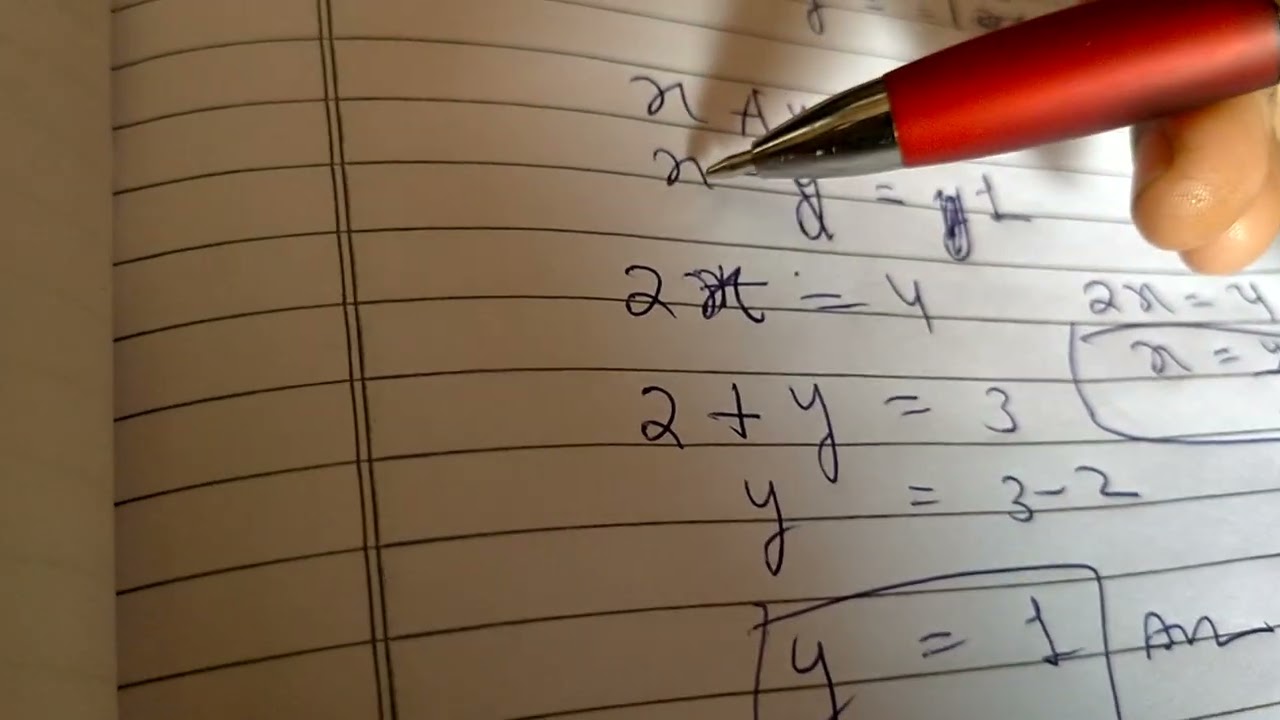 x + y
x y = 1
2x = 4 2x = 4
x =
2 + y = 3
y = 3 - 2
y = 1 Ans